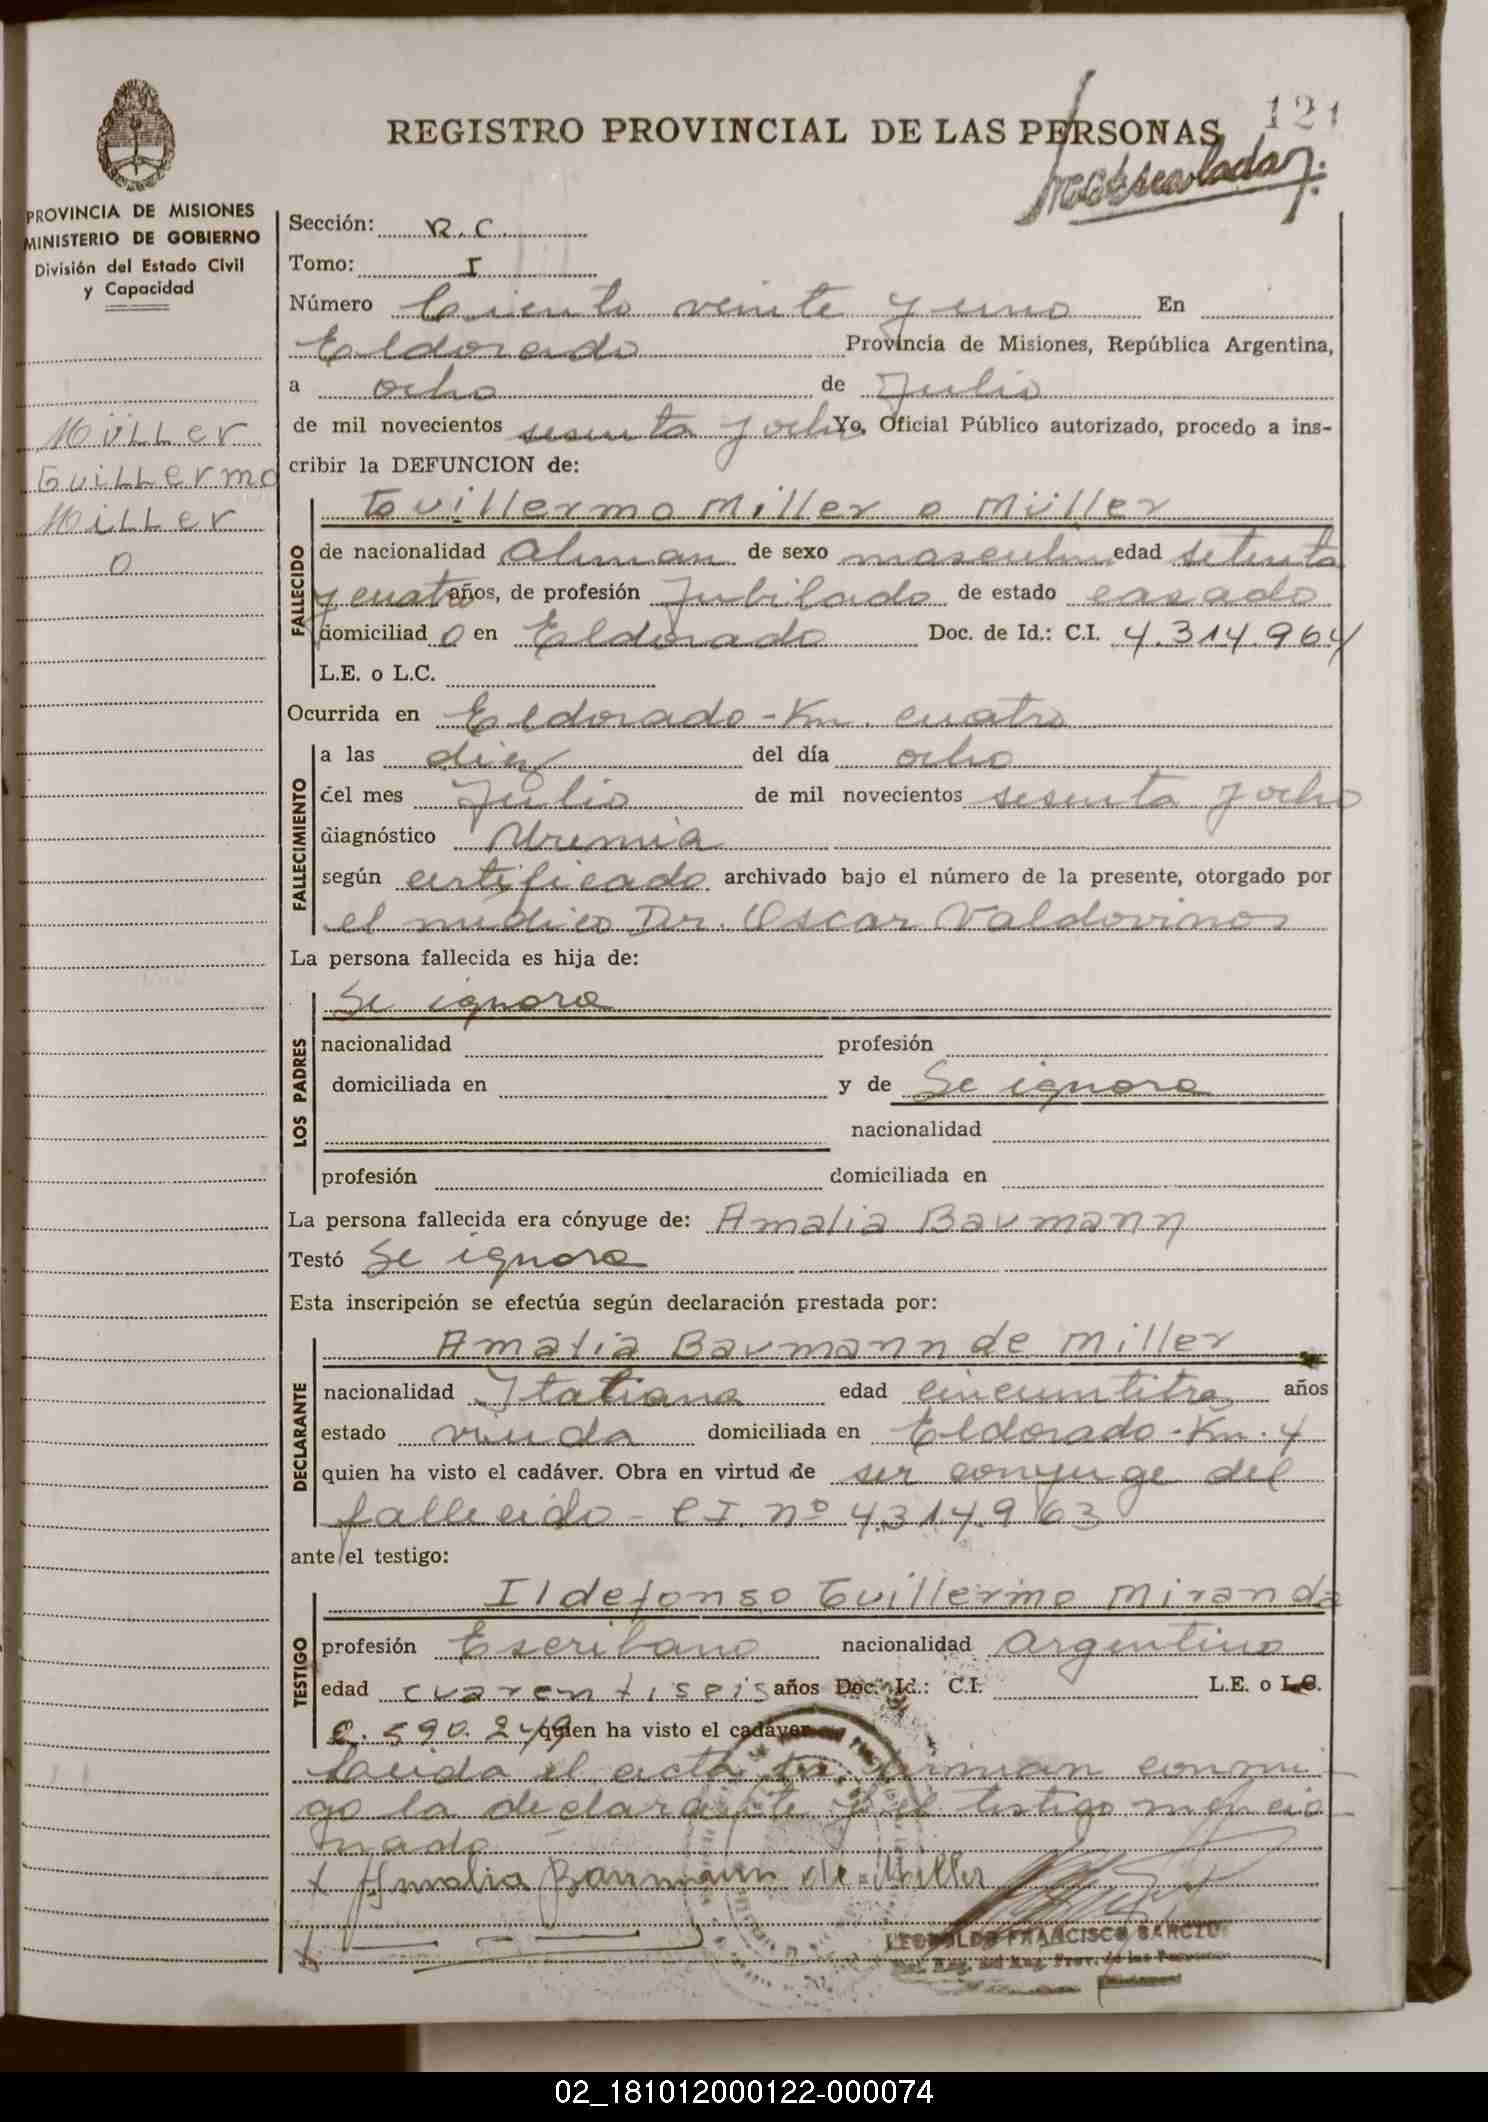 121
REGISTRO PROVINCIAL DE LAS PERSONAS
PROVINCIA DE MISIONES
MINISTERIO DE GOBIERNO
División del Estado Civil
y Capacidad
Müller
Guillermo
Miller
o
Sección: R.C.
Tomo: I
Número Ciento veinte y uno En
Eldorado Provincia de Misiones, República Argentina,
a ocho de Julio
de mil novecientos sesenta y ocho Yo, Oficial Público autorizado, procedo a ins-
cribir la DEFUNCION de:
Guillermo Miller o Müller
FALLECIDO
de nacionalidad Aleman de sexo masculino edad setenta
y cuatro años, de profesión Jubilado de estado casado
domiciliad o en Eldorado Doc. de Id.: C.I. 4.314.964
L.E. o L.C.
Ocurrida en Eldorado - Km. cuatro
FALLECIMIENTO
a las diez del día ocho
del mes Julio de mil novecientos sesenta y ocho
diagnóstico Uremia
según certificado archivado bajo el número de la presente, otorgado por
el médico Dr. Oscar Valdovinos
La persona fallecida es hija de:
LOS PADRES
Se ignora
nacionalidad profesión
domiciliada en y de Se ignora
nacionalidad
profesión domiciliada en
La persona fallecida era cónyuge de: Amalia Baumann
Testó Se ignora
Esta inscripción se efectúa según declaración prestada por:
DECLARANTE
Amalia Baumann de Miller
nacionalidad Italiana edad años
estado viuda domiciliada en Eldorado - Km. 4
quien ha visto el cadáver. Obra en virtud de ser conyuge del
fallecido - C I. nº 4.314.963
ante el testigo:
TESTIGO
Ildefonso Guillermo Miranda
profesión Escribano nacionalidad Argentino
edad cuarentiseis años Doc. Id.: C.I. L.E. o L.C.
590.249 quien ha visto el cadáver
Leida el acta la firman conmi-
go la declarante y el testigo mencio-
nado
x Amalia Baumann de Miller
x
LEOPOLDO FRANCISCO
02_181012000122-000074